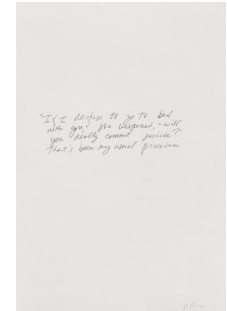 "If I refuse to go to bed
with you," she whispered, "will
you really commit suicide?"
that's been my usual procedure